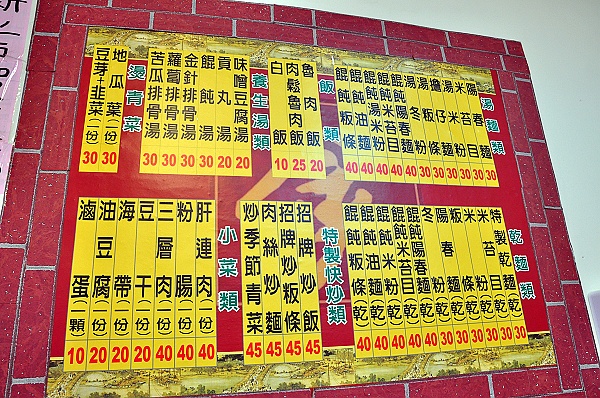 湯麵類
陽春麵 30
米苔目 30
湯米粉 30
擔仔麵 30
湯粄條 30
湯冬粉 30
餛飩陽春麵 40
餛飩米苔目 40
餛飩湯米粉 40
餛飩油麵 40
餛飩粄條 40
飯類
魯肉飯 20
肉鬆魯肉飯 25
白飯 10
養生湯類
味噌豆腐湯 20
貢丸湯 20
餛飩湯 30
金針排骨湯 30
蘿蔔排骨湯 30
苦瓜排骨湯 30
燙青菜
地瓜葉(一份) 30
豆芽+韭菜(一份) 30
乾麵類
特製乾麵 30
米苔目(乾) 30
米粉(乾) 30
粄條(乾) 30
陽春麵(乾) 30
冬粉(乾) 30
餛飩陽春麵(乾) 40
餛飩米苔目(乾) 40
餛飩米粉(乾) 40
餛飩油麵(乾) 40
餛飩粄條(乾) 40
特製快炒類
招牌炒飯 45
招牌炒粄條 45
肉絲炒麵 45
炒季節青菜 45
小菜類
肝連肉(一份) 40
粉腸(一份) 40
三層肉(一份) 40
豆干(一份) 20
海帶(一份) 20
油豆腐(一份) 20
滷蛋(一顆) 10